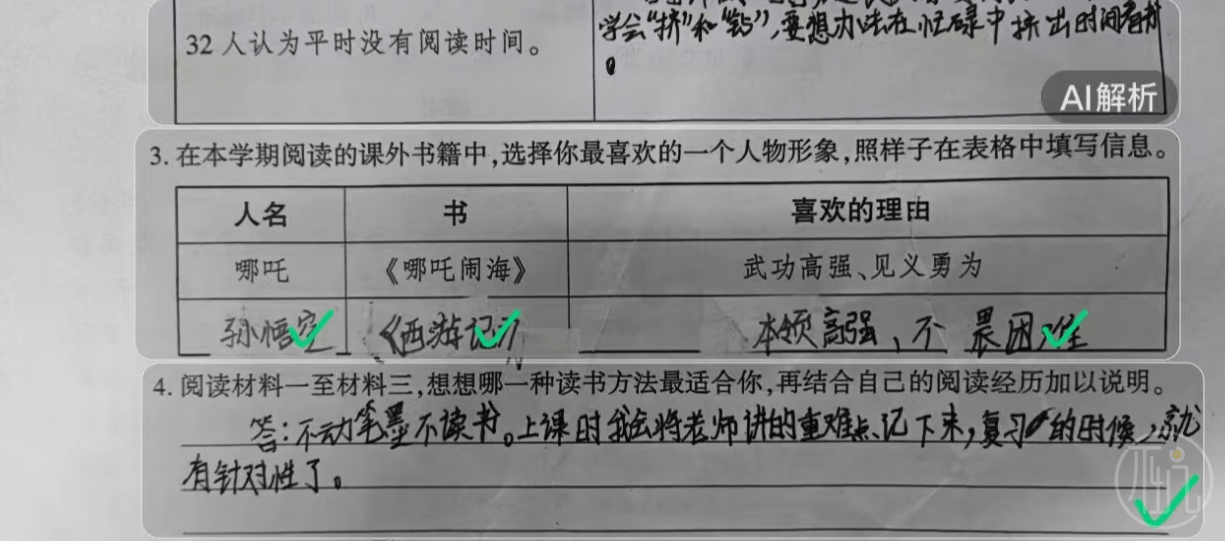 32人认为平时没有阅读时间。
学会“挤”和“钻”,要想办法在忙碌中挤出时间看书
。
AI解析
3.在本学期阅读的课外书籍中,选择你最喜欢的一个人物形象,照样子在表格中填写信息。
人名 书 喜欢的理由
哪吒 《哪吒闹海》 武功高强、见义勇为
孙悟空 《西游记》 本领高强、不畏困难
4.阅读材料一至材料三,想想哪一种读书方法最适合你,再结合自己的阅读经历加以说明。
答:不动笔墨不读书。上课时我会将老师讲的重难点记下来,复习的时候,就
有针对性了。